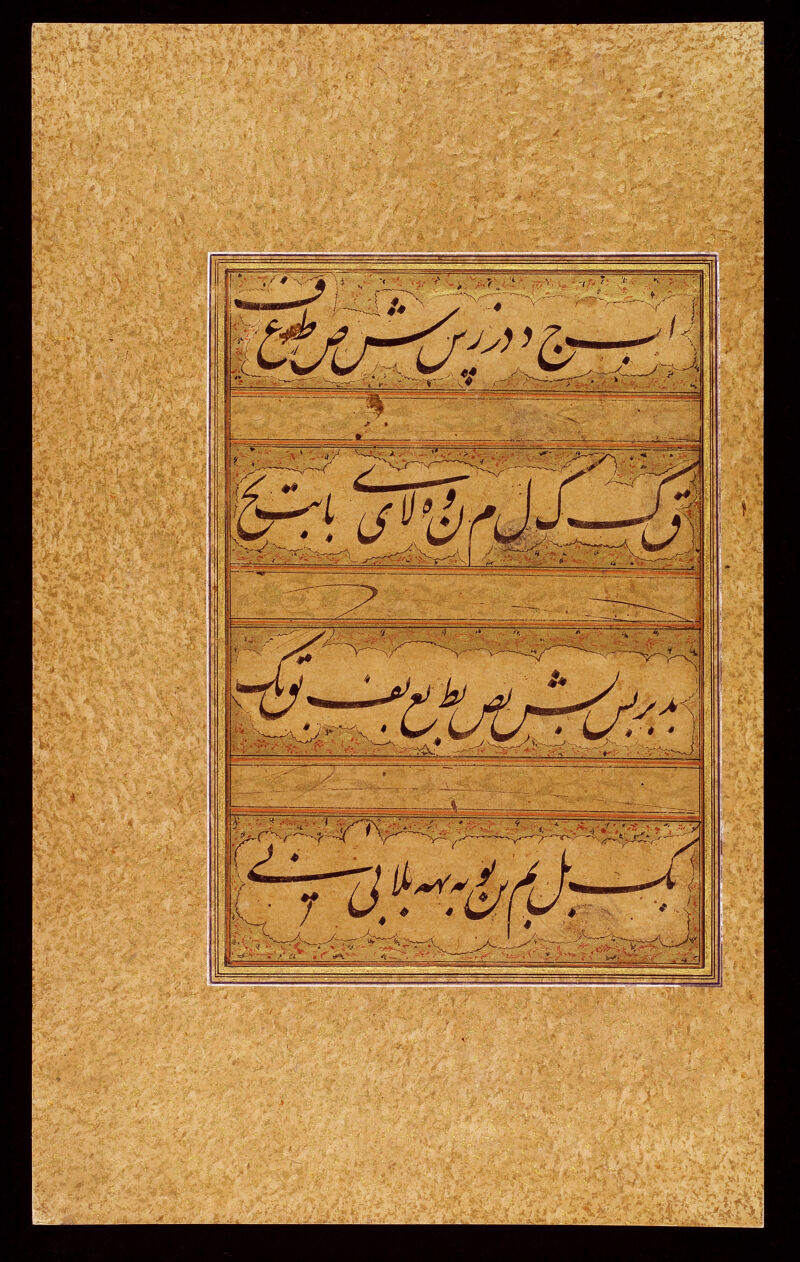 ا ب ج د د ر ر س ش ص ط ع ف
ق ک ک ل م ن و ه لا ی ے با بت بح
بد بر بر بس بش بص بط بع بف بق بک
بک بل بم بن بو به بهه بلا بی بے